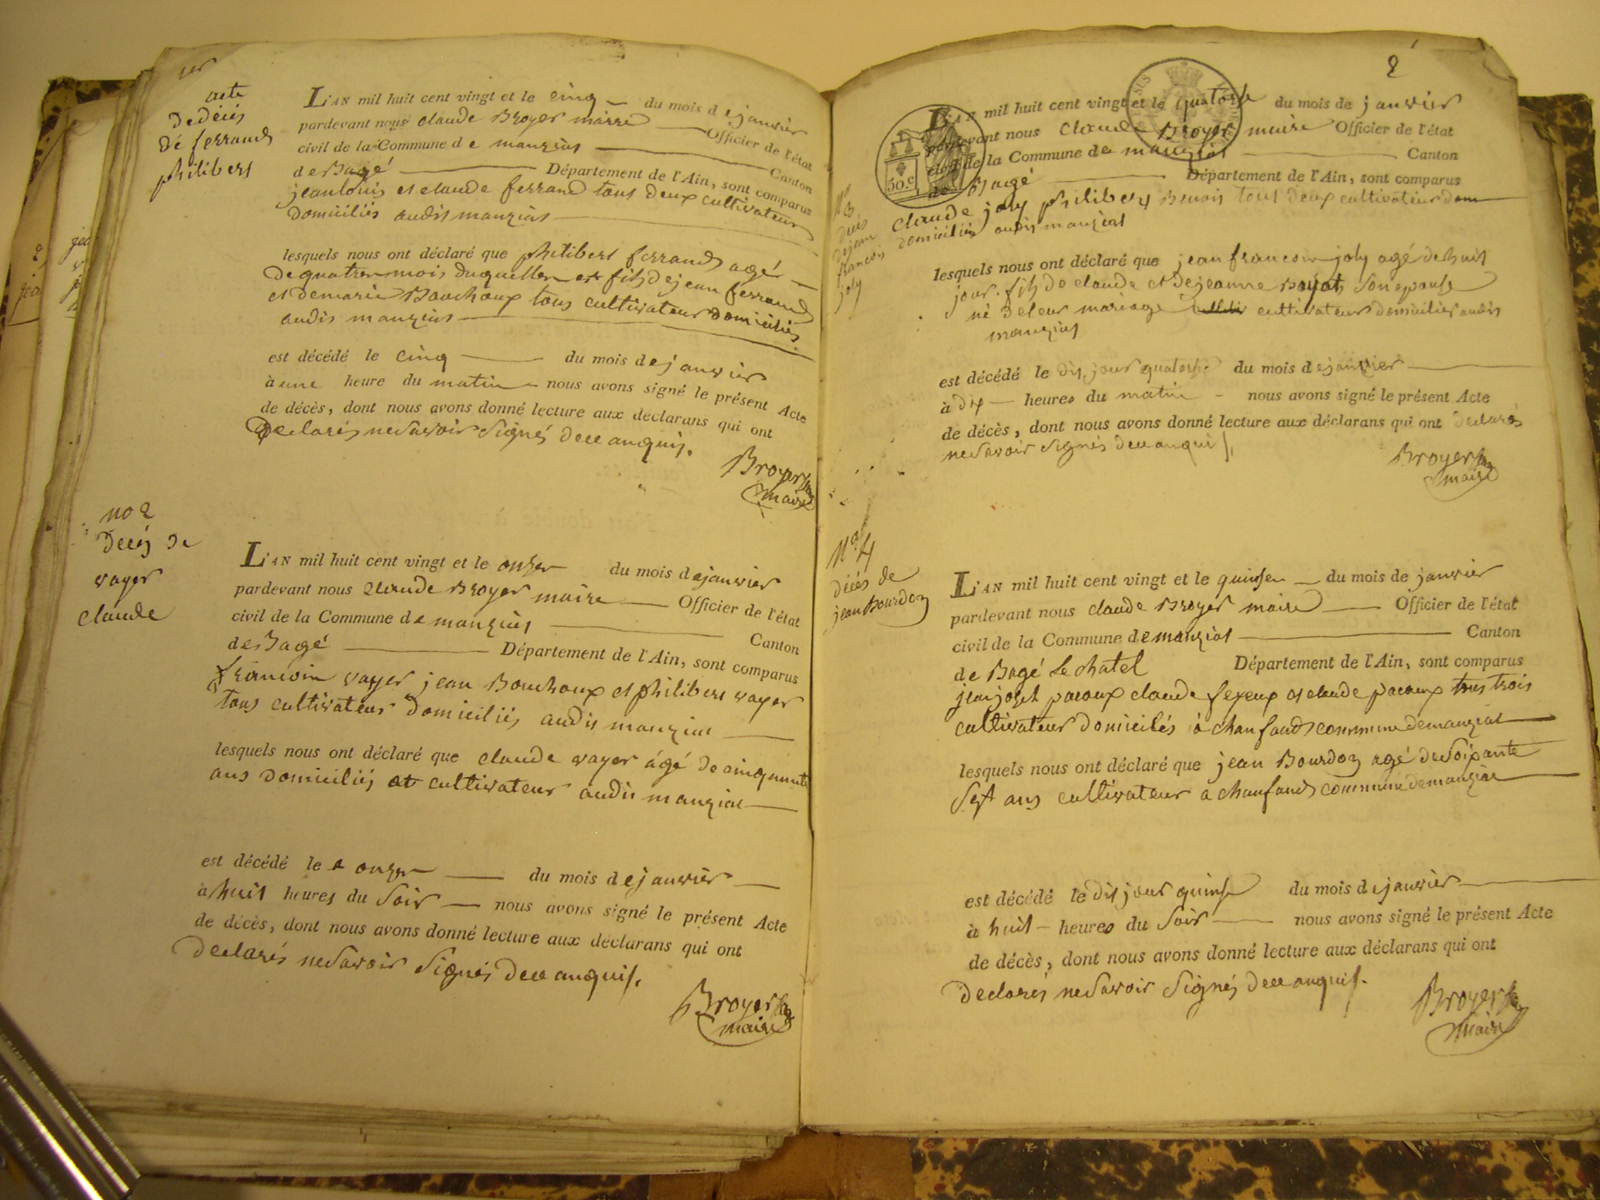 1er
acte
de décès
de ferrand
philibers
L'AN mil huit cent vingt et le cinq du mois de janvier
pardevant nous claude Broyer maire Officier de l'état
civil de la Commune de manzias Canton
de Bagé Département de l'Ain, sont comparus
jean louis et claude ferrand tous deux cultivateur
domiciliés audis manzias
lesquels nous ont déclaré que philibers ferrand agé
de quatre mois duquel est fils de jean ferrand
et de marie Bouchoux tous cultivateur domiciliés
audis manzias
est décédé le cinq du mois de janvier
à une heure du matin nous avons signé le présent Acte
de décès, dont nous avons donné lecture aux déclarans qui ont
declarés ne savoir signés de ce anquis.
Broyer
maire
no 2
Decés de
vayer
claude
L'AN mil huit cent vingt et le onze du mois de janvier
pardevant nous claude Broyer maire Officier de l'état
civil de la Commune de manzias Canton
de Bagé Département de l'Ain, sont comparus
françois vayer jean Bouchoux et philibers vayer
tous cultivateur domiciliés audis manzias
lesquels nous ont déclaré que claude vayer âgé de cinquante
ans domiciliés et cultivateur audis manzias
est décédé le onze du mois de janvier
à huit heures du soir nous avons signé le présent Acte
de décès, dont nous avons donné lecture aux déclarans qui ont
declarés ne savoir signés de ce anquis.
Broyer
maire
2
50 c
L'AN mil huit cent vingt et le quatorze du mois de janvier
pardevant nous claude Broyer maire Officier de l'état
civil de la Commune de manzias Canton
de Bagé Département de l'Ain, sont comparus
claude joly philibers Benois tous deux cultivateur
domiciliés audis manzias
N° 3
decés
de jean
francois
joly
lesquels nous ont déclaré que jean francois joly agé de huit
jour fils de claude et de jeanne Boyat son epouse
né de leur mariage cultivateur domiciliés audis
manzias
est décédé le dis jour quatorze du mois de janvier
à dix heures du matin nous avons signé le présent Acte
de décès, dont nous avons donné lecture aux déclarans qui ont declarés
ne savoir signés de ce anquis
Broyer
maire
N° 4
décés de
jean Bourdon
L'AN mil huit cent vingt et le quinze du mois de janvier
pardevant nous claude Broyer maire Officier de l'état
civil de la Commune de manzias Canton
de Bagé Le chatel Département de l'Ain, sont comparus
jean josept pacoux claude feyeux et claude pacoux tous trois
cultivateur domiciliés à chanfand commune de manzias
lesquels nous ont déclaré que jean Bourdon agé de soixante
sept ans cultivateur a chanfand commune de manzias
est décédé le dis jour quinze du mois de janvier
à huit heures du soir nous avons signé le présent Acte
de décès, dont nous avons donné lecture aux déclarans qui ont
declarés ne savoir signés de ce anquis.
Broyer
maire